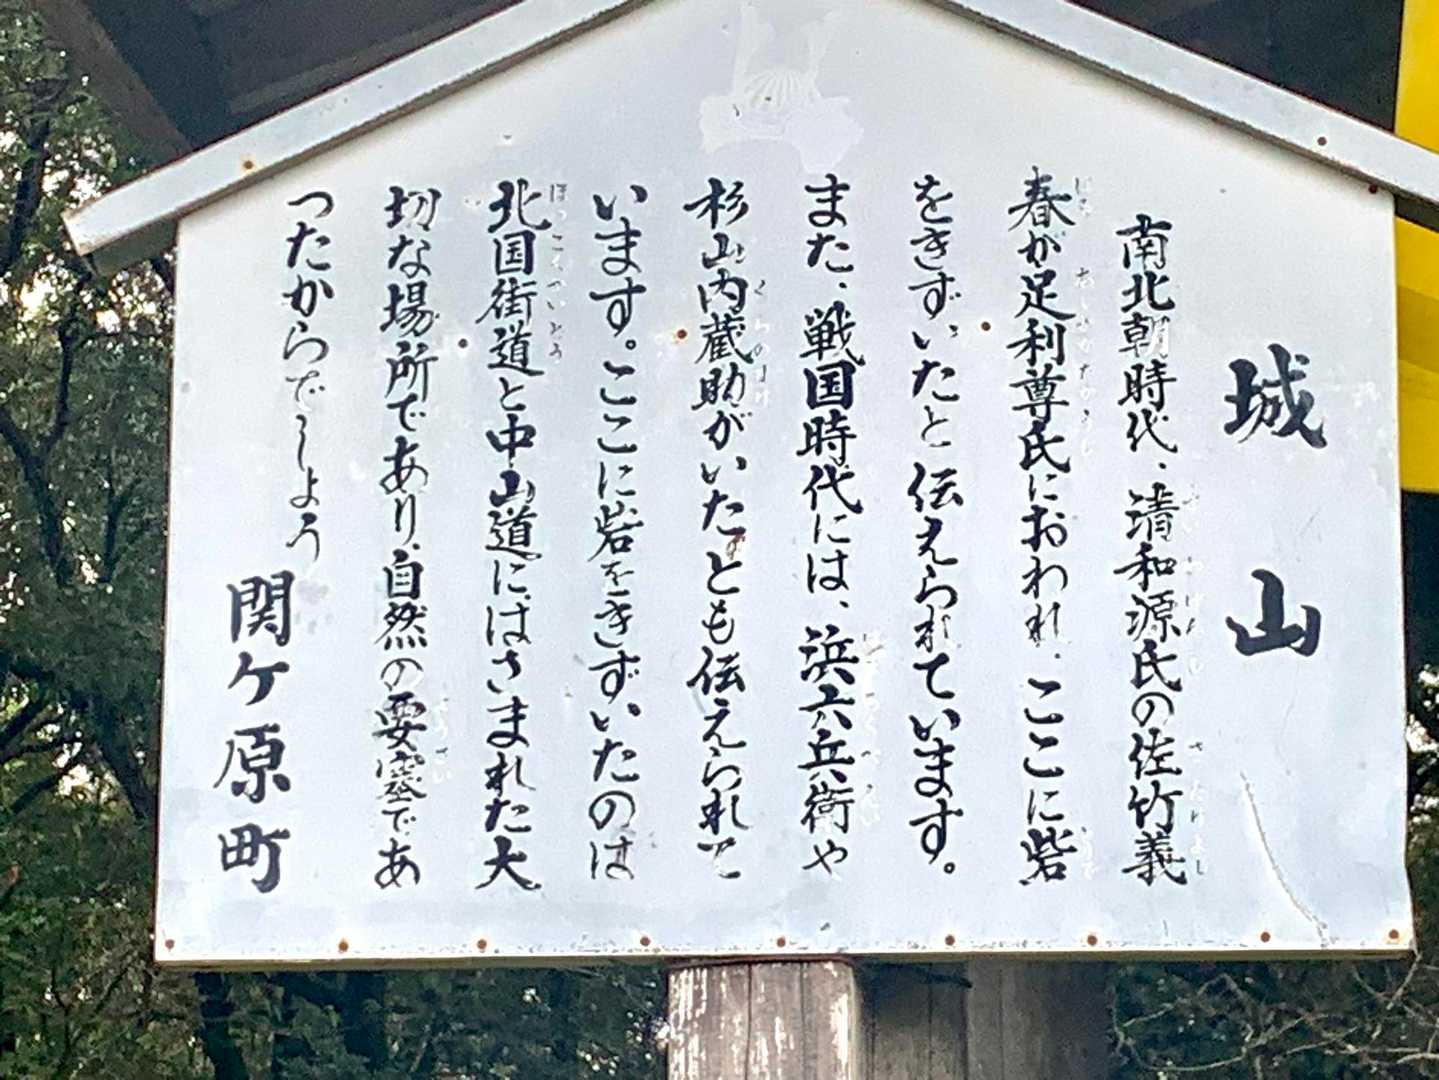 城山
南北朝時代、清和源氏の佐竹義
春が足利尊氏におわれ、ここに砦
をきずいたと伝えられています。
また、戦国時代には、浜六兵衛や
杉山内蔵助がいたとも伝えられて
います。ここに砦をきずいたのは
北国街道と中山道にはさまれた大
切な場所であり、自然の要塞であ
ったからでしょう
関ケ原町